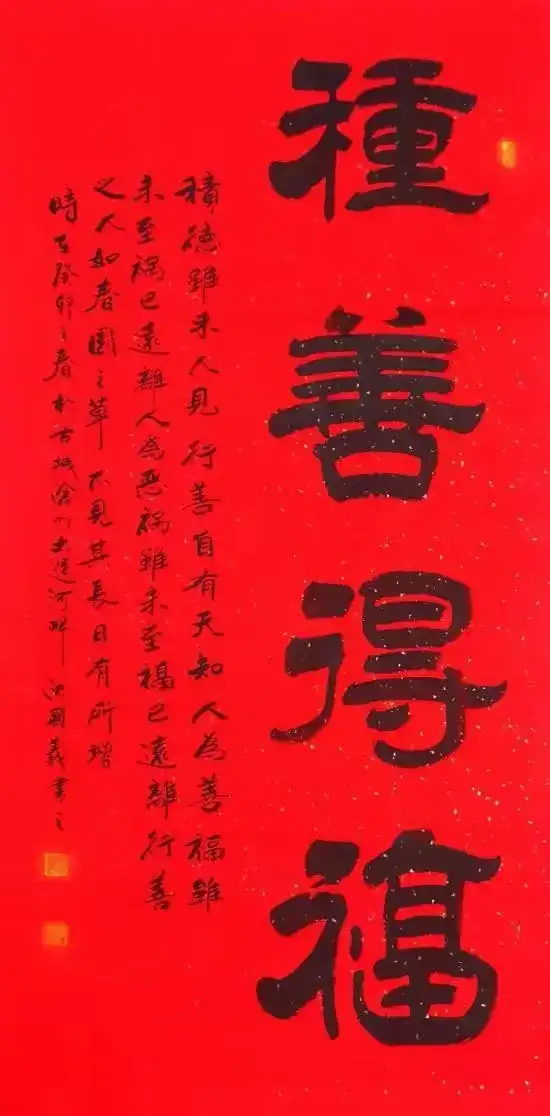 種善得福
積德雖未人見行善自有天知人為善福雖
未至禍已遠離人為惡禍雖未至福已遠離行善
之人如春園之草不見其長日有所增
時在癸卯之春於古城滄州大運河畔 國義書之